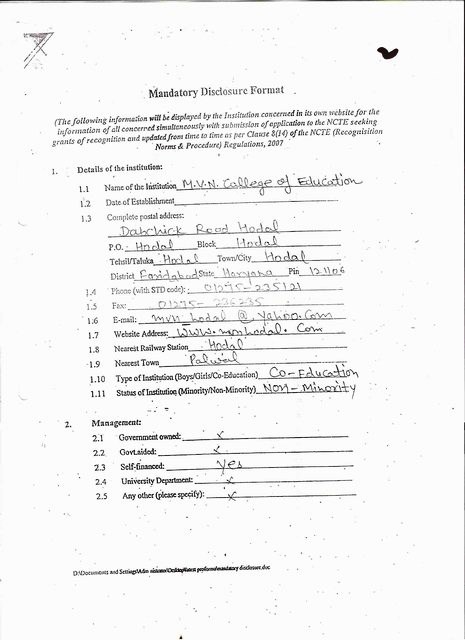 Mandatory Disclosure Format
(The following information will be displayed by the Institution concerned in its own website for the
information of all concerned simultaneously with submission of application to the NCTE seeking
grants of recognition and updated from time to time as per Clause 8(14) of the NCTE (Recognisition
Norms & Procedure) Regulations, 2007
1. Details of the institution:
1.1 Name of the Institution M.V.N. College of Education
1.2 Date of Establishment
1.3 Complete postal address:
Road Hodal
P.O. Hodal Block Hodal
Tehsil/Taluka Hodal Town/City Hodal
District Faridabad State Haryana Pin 121106
1.4 Phone (with STD code): 01275-235121
1.5 Fax: 01275-236235
1.6 E-mail: mvn_hodal@yahoo.com
1.7 Website Address: www.mvnhodal.com
1.8 Nearest Railway Station Hodal
1.9 Nearest Town Palwal
1.10 Type of Institution (Boys/Girls/Co-Education) Co-Education
1.11 Status of Institution (Minority/Non-Minority) Non-Minority
2. Management:
2.1 Government owned: x
2.2 Govt.aided: x
2.3 Self-financed: Yes
2.4 University Department: x
2.5 Any other (please specify): x